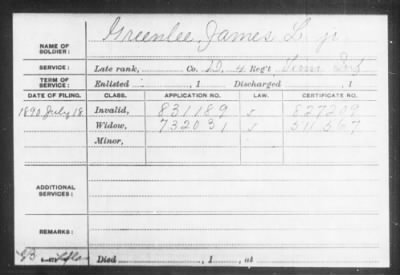 Greenlee, James L. jr
NAME OF SOLDIER:
SERVICE: Late rank, Co. D, 4 Reg't Tenn Inf
TERM OF SERVICE: Enlisted , 1 Discharged , 1
DATE OF FILING. CLASS. APPLICATION NO. LAW. CERTIFICATE NO.
1890 July 18 Invalid, 831189 827209
Widow, 732031 511567
Minor,
ADDITIONAL SERVICES:
REMARKS:
Died , 1 , at